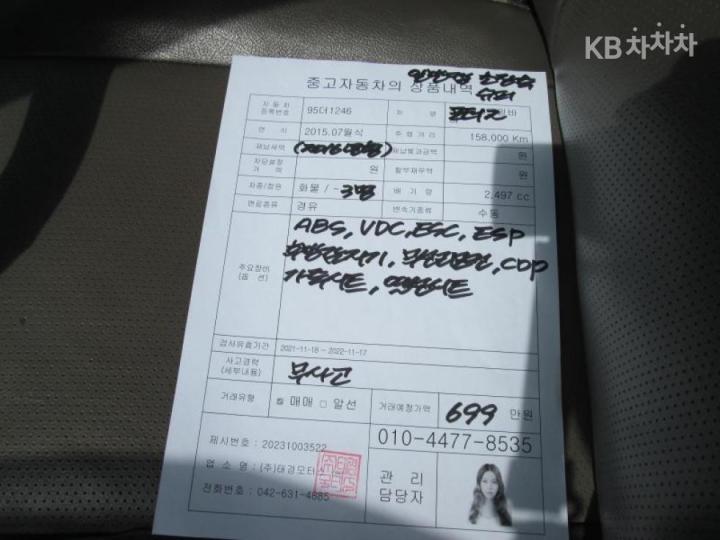 KB차차차
일반캡 초장축
중고자동차의 상품내역 슈퍼
자동차등록번호 95더1246 차 명 포터2
연 식 2015.07월식 주행거리 158,000 Km
체납세액 (2016년형) 체납별과금액 원
저당설정가액 원 할부채무액 원
차종/정원 화물 / ~ 3명 배기량 2,497 cc
연료종류 경유 변속기종류 수동
ABS, VDC, ESC, ESP
후방감지기, 무선리모컨, CDP
주요장비(옵션) 가죽시트, 열선시트
검사유효기간 2021-11-18 ~ 2022-11-17
사고경력(세부내용) 무사고
거래유형 매매 알선 거래예정가액 699 만원
010-4477-8535
제시번호 : 20231003522
업 소 명 : (주)태경모터스
관리담당자
전화번호 : 042-631-4885